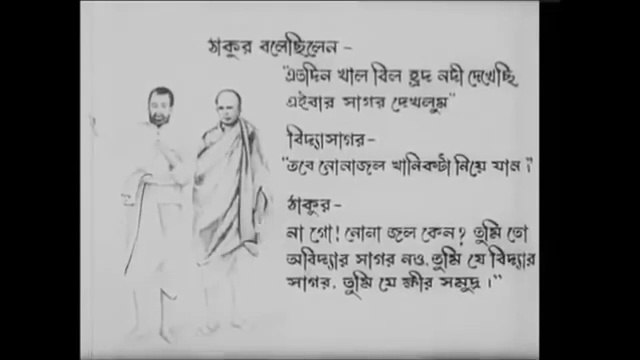 ঠাকুর বলেছিলেন -
"এতদিন খাল বিল হ্রদ নদী দেখেছি
এইবার সাগর দেখলুম"
বিদ্যাসাগর-
"তবে নোনাজল খানিকটা নিয়ে যান।"
ঠাকুর-
না গো! নোনা জল কেন? তুমি তো
অবিদ্যার সাগর নও, তুমি যে বিদ্যার
সাগর, তুমি যে ক্ষীর সমুদ্র।"